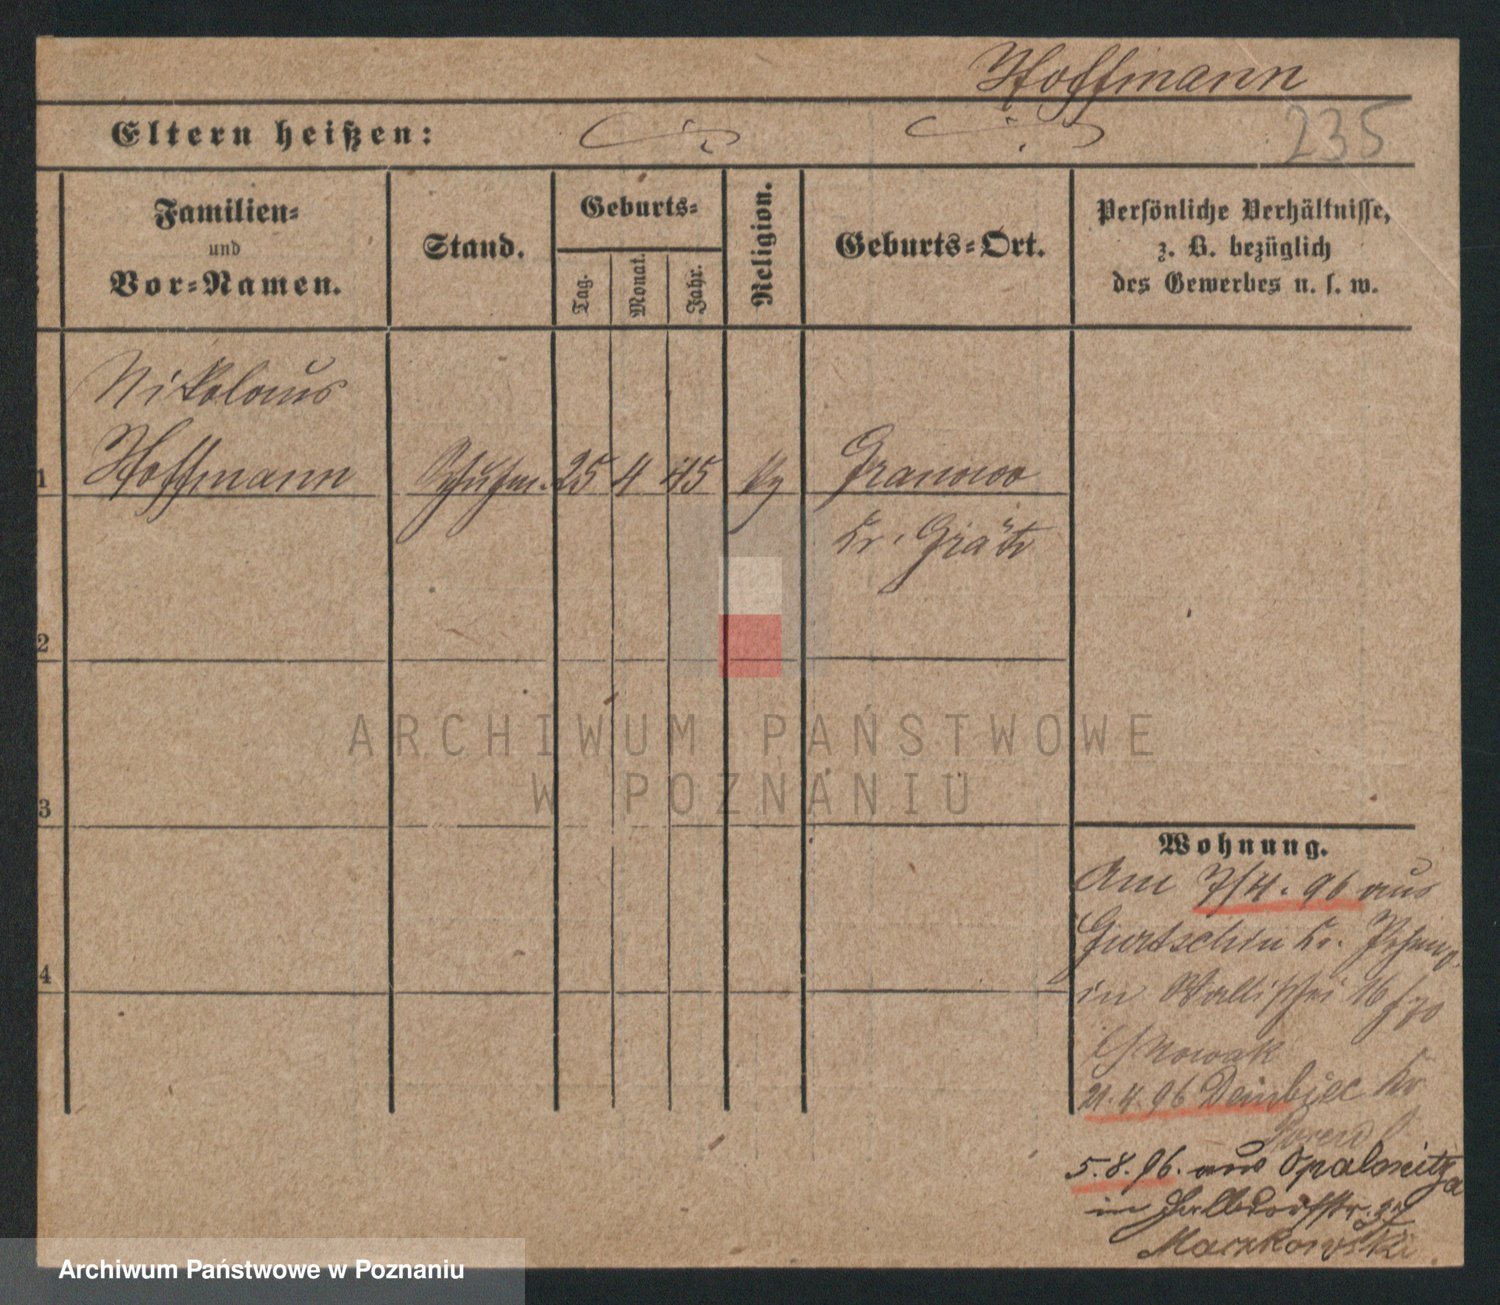 Hoffmann
235
Eltern heißen:
Familien=
und
Vor=Namen.
Stand.
Geburts=
Tag.
Monat.
Jahr.
Religion.
Geburts=Ort.
Persönliche Verhältnisse,
z. B. bezüglich
des Gewerbes u. s. w.
Nikolaus
1 Hoffmann 25 4 45 Granowo
Kr. Grätz
2
3
4
Wohnung.
Am 7/4. 96 aus
Gurtschin Kr.
in Wallischei 16
Nowak
21.4.96 Kr
5.8.96. aus Opalenitza
in Halbdorfstr. 37
Maczkowski
ARCHIWUM PAŃSTWOWE
W POZNANIU
Archiwum Państwowe w Poznaniu